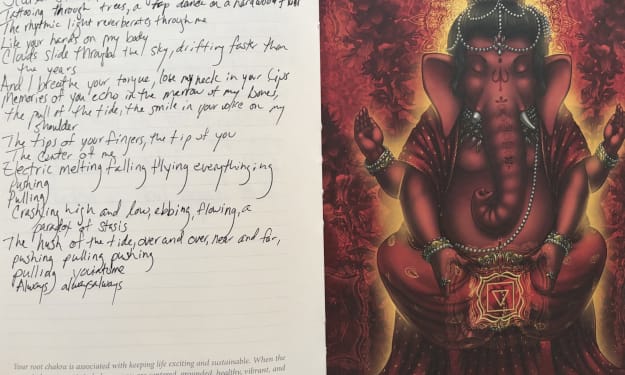 Tattooing through trees, a tap dance on a hardwood floor
The rhythmic light reverberates through me
Like your hands on my body
Clouds slide through the sky, drifting faster than
the years
And I breathe your tongue, lose my neck in your lips
Memories of you echo in the marrow of my bones,
the pull of the tide, the smile in your voice on my
shoulder
The tips of your fingers, the tip of you
The center of me
Electric melting falling flying everythinging
pushing
Pulling
Crashing high and low, ebbing, flowing, a
paradox of stasis
The hush of the tide, over and over, near and far,
pushing pulling pushing
pulling
Always alwaysalways
Your root chakra is associated with keeping life exciting and sustainable. When the
centered, grounded, healthy, vibrant, and